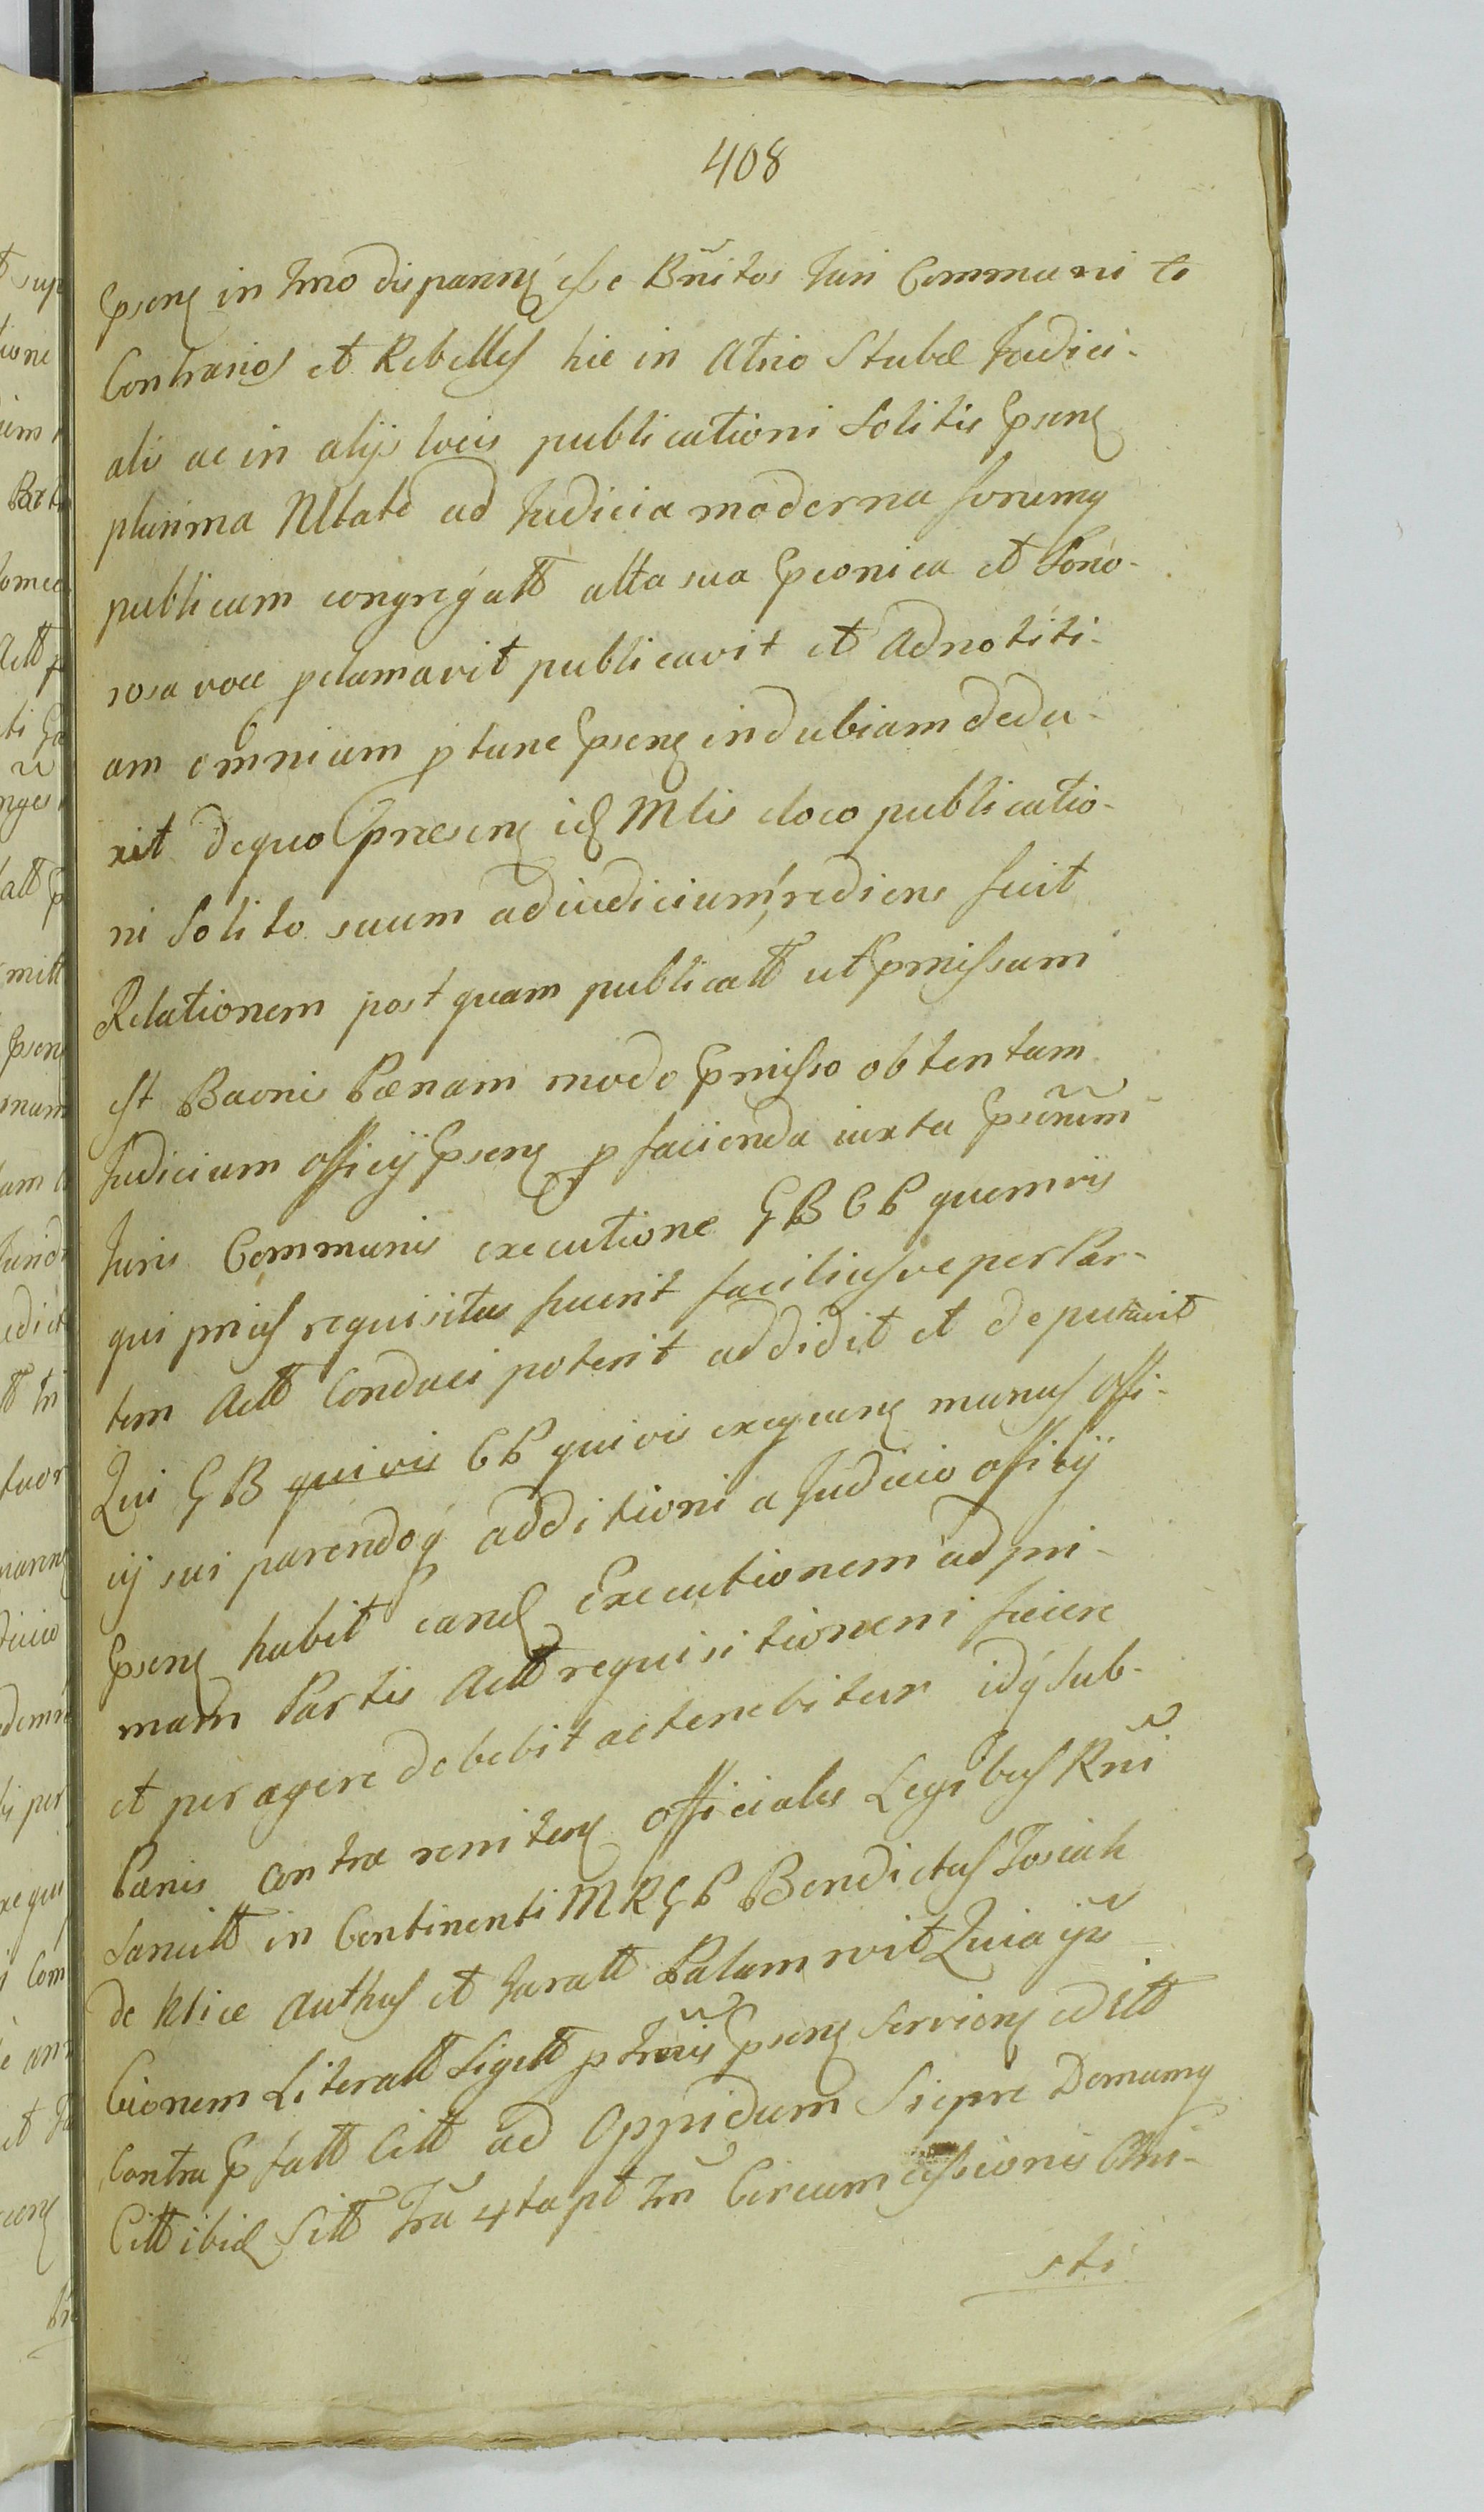 408
psenz in Tmo disparenz esse Bnitos Juri Communi te
Contrarios et Rebelles hic in Atrio Stubæ Judici-
alis ac in alijs locis publicationi Solitis psenz
plurima Nltate ad Judicia moderna forumq
publicum congregatt alta sua pconica et Sono-
rosa voce pclamavit publicavit et Ad notiti-
am omnium p tunc psenz indubiam dedu-
xit de quo præsenz id Mlis eloco publicatio-
ni Solito suum ad iudicium, rediens fecit
Relationem post quam publicatt ut pmissum
est Baonis Pænam modo pmisso obtentam
Judicium officij psenz p facienda iuxta pscrium
Juris Communis executione GB CP quemvis
qui prius requisitus fuerit faciliusve per Par-
tem Actt Conduci poterit addidit et deputavit
Qui GB quivis CP quivis exequenz munus offi-
cij sui parendoq additioni a Judicio officij
psenz habit eand Executionem ad pri-
mam Partis Actt requisitionem facere
et peragere debebit ac tenebitur idq sub-
Pænis contra renitenz officiales Legibus Rni
Sancitt in Continenti MRGP Bendictus Josiah
de Ktice Authus et Juratt Palam rvit Quia ijs
Cionem Literatt Sigett p Trmis psenz Servienz editt
Contra pfatt Citt ad Oppidum Siepre Domumq
Citt ibid Sitt Fria 4ta pt Fm Circumcissionis Chri-
sti